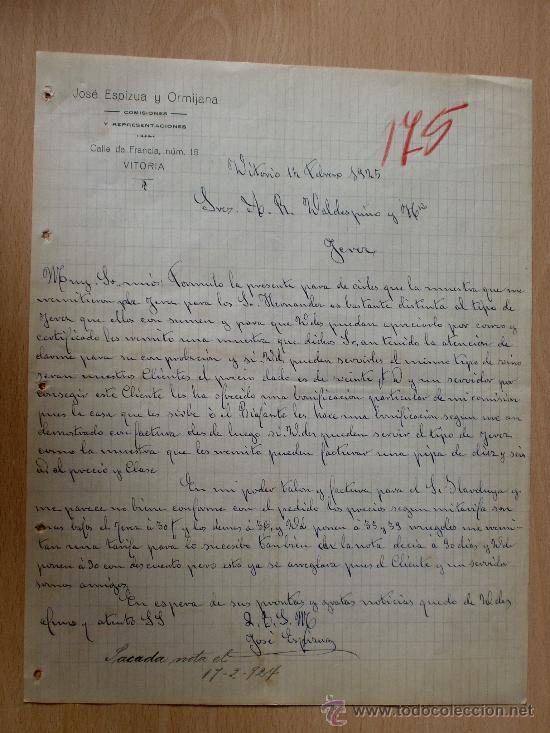 José Espizua y Ormijana
COMISIONES
Y REPRESENTACIONES
Calle de Francia, núm. 18
VITORIA
175
Vitoria 14 Febrero 1925
Sres. A. R. Valdespino y Hno
Jerez
Muy Sr. mios: Formulo la presente para decirles que la muestra que me
remitieron de Jerez para los Sr Hernandez es bastante distinta al tipo de
Jerez que ellos con sumen y para que Vdes puedan apreciarlo por correo y
certificado les remito una muestra que dichos Sr, an tenido la atencion de
darme para su conprobacion y si Vd pueden servirles el mismo tipo de vino
seran nuestros Clientes el precio dado es de veinte y un servidor por
conseguir este Cliente les ha ofrecido una bonificacion particular de mi comision
pues la casa que les sirbe o el Biajante les hace una bonificacion segun me an
demostrado con factura des de luego si Vdes pueden servir el tipo de Jerez
como la muestra que les remito pueden facturar una pipa de diez y seis
al precio y Clase
En mi poder talon y factura para el Sr Ilarduya y
me parece no biene conforme con el pedido los precios segun mi tarifa son
mas bajos el Jerez á 30 y los demas á 36, y Vds ponen á 35 y 39 ruegoles me remi-
tan una tarifa para lo sucesibo tanbien la nota decia á 90 dias y Vdes
ponen á 30 con descuento pero esto ya se arreglara pues el Cliente y un servidor
somos amigos
En espera de sus prontas y gratas noticias quedo de Vdes
afmo y atento SS Q. E. S. M
José Espizua
Sacada nota el
17-2-924
www.todocoleccion.net